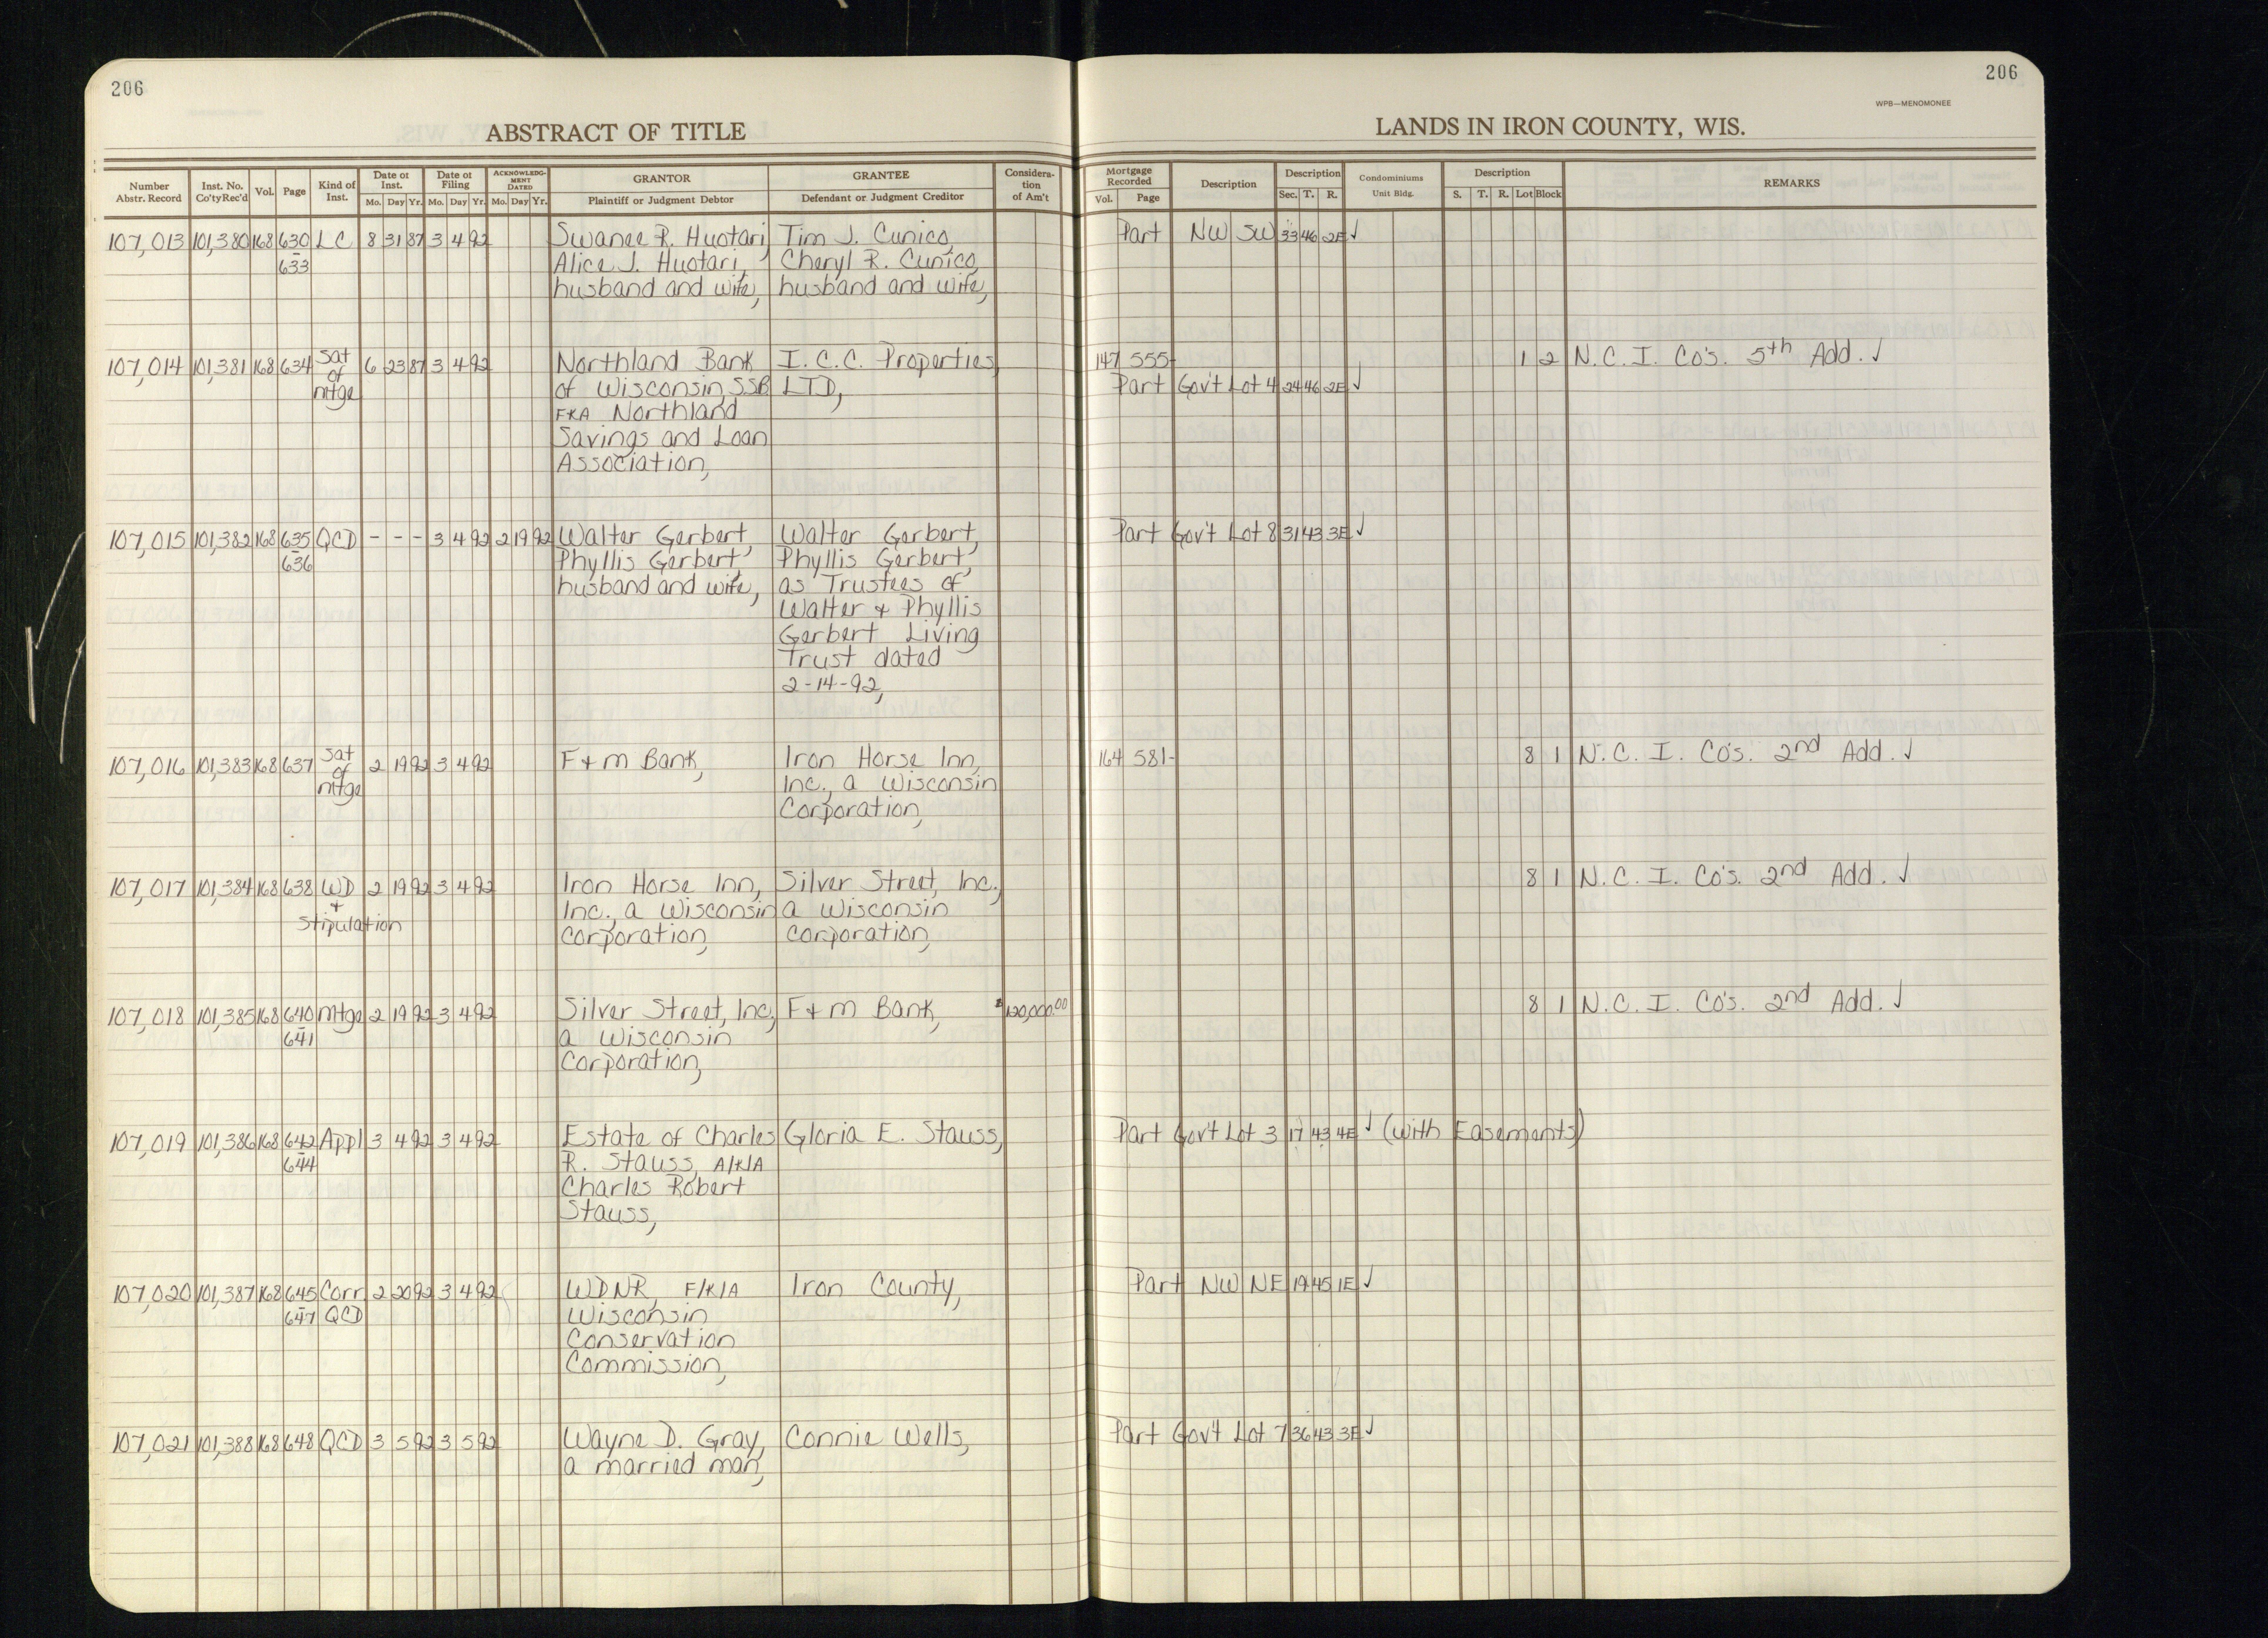 206
206
WPB—MENOMONEE
ABSTRACT OF TITLE
LANDS IN IRON COUNTY, WIS.
Number Abstr. Record | Inst. No. Co'ty Rec'd | Vol. | Page | Kind of Inst. | Date of Inst. Mo. Day Yr. | Date of Filing Mo. Day Yr. | ACKNOWLEDGMENT DATED Mo. Day Yr. | GRANTOR Plaintiff or Judgment Debtor | GRANTEE Defendant or Judgment Creditor | Consideration of Am't | Mortgage Recorded Vol. Page | Description | Description Sec. T. R. | Condominiums Unit Bldg. | Description S. T. R. Lot Block | REMARKS
107,013 101,380 168 630 LC 8 31 87 3 4 92 Swanee R. Huotari, Tim J. Cunico, Part NW SW 33 46 2E ✓
– 633 Alice J. Huotari, Cheryl R. Cunico,
husband and wife, husband and wife,
107,014 101,381 168 634 Sat 6 23 87 3 4 92 Northland Bank I.C.C. Properties, 147 555- 1 2 N.C.I. Co's. 5th Add. ✓
of of Wisconsin, S.S.B. LTD, Part Gov't Lot 4 24 46 2E ✓
mtge FKA Northland
Savings and Loan
Association,
107,015 101,382 168 635 QCD - - - 3 4 92 2 19 92 Walter Gerbert, Walter Gerbert, Part Gov't Lot 8 31 43 3E ✓
– 636 Phyllis Gerbert, Phyllis Gerbert,
husband and wife, as Trustees of
Walter + Phyllis
Gerbert Living
Trust dated
2-14-92,
107,016 101,383 168 637 Sat 2 19 92 3 4 92 F+M Bank, Iron Horse Inn, 164 581- 8 1 N.C.I. Co's. 2nd Add. ✓
of Inc., a Wisconsin
mtge Corporation,
107,017 101,384 168 638 WD 2 19 92 3 4 92 Iron Horse Inn, Silver Street, Inc., 8 1 N.C.I. Co's. 2nd Add. ✓
+ Inc., a Wisconsin a Wisconsin
Stipulation Corporation, Corporation,
107,018 101,385 168 640 Mtge 2 19 92 3 4 92 Silver Street, Inc, F+M Bank, $120,000.00 8 1 N.C.I. Co's. 2nd Add. ✓
– 641 a Wisconsin
Corporation,
107,019 101,386 168 642 Appl 3 4 92 3 4 92 Estate of Charles Gloria E. Stauss, Part Gov't Lot 3 17 43 4E ✓ (with Easements)
– 644 R. Stauss, A/K/A
Charles Robert
Stauss,
107,020 101,387 168 645 Corr 2 20 92 3 4 92 WDNR, F/K/A Iron County, Part NW NE 19 45 1E ✓
– 647 QCD Wisconsin
Conservation
Commission,
107,021 101,388 168 648 QCD 3 5 92 3 5 92 Wayne D. Gray, Connie Wells, Part Gov't Lot 7 36 43 3E ✓
a married man,